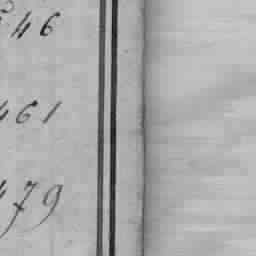 46
461
479